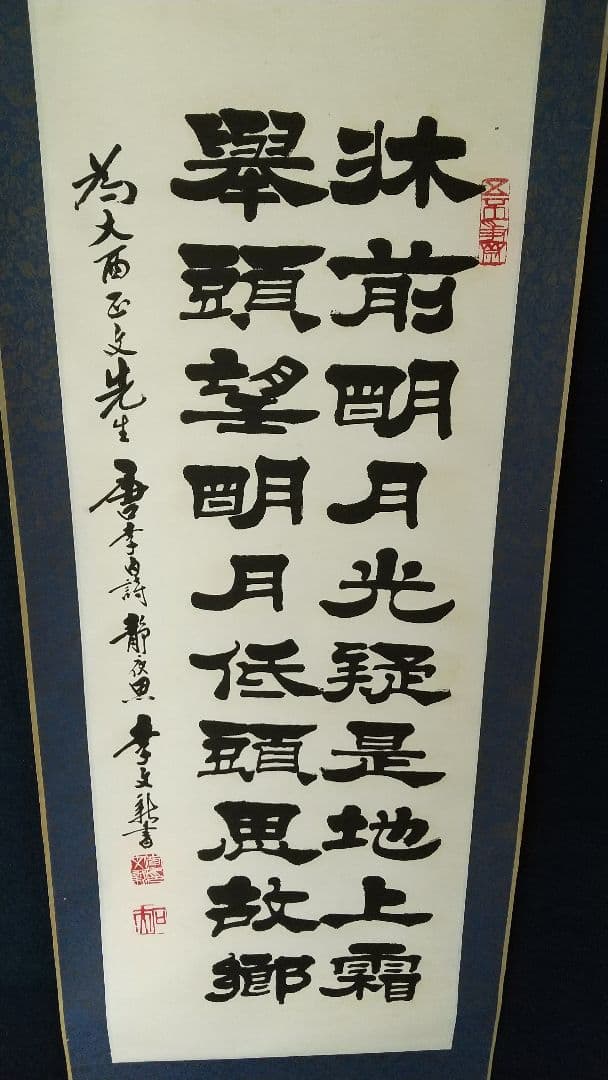 牀前明月光疑是地上霜
舉頭望明月低頭思故鄉
為大西正文先生 唐李白詩 靜夜思 李文新書